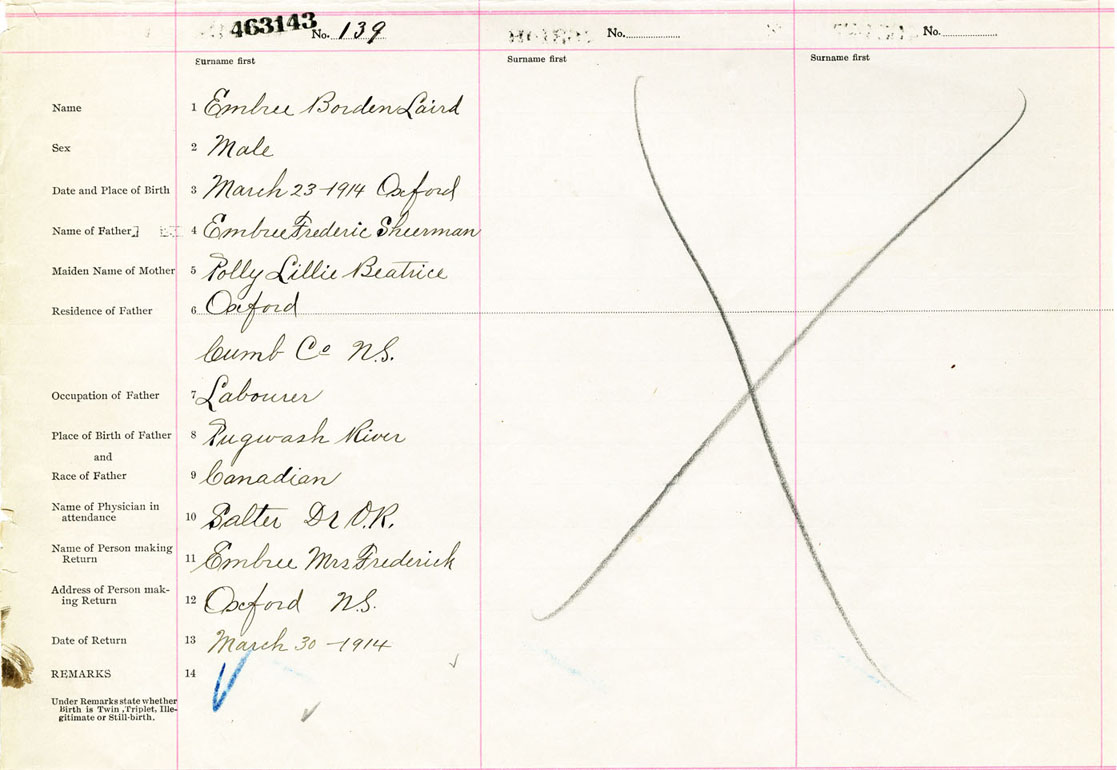 463143 No. 139 No. No.
Surname first Surname first Surname first
Name 1 Embree Borden Laird
Sex 2 Male
Date and Place of Birth 3 March 23-1914 Oxford
Name of Father 4 Embree Frederic Sheerman
Maiden Name of Mother 5 Polly Lillie Beatrice
Residence of Father 6 Oxford
Cumb Co N.S.
Occupation of Father 7 Labourer
Place of Birth of Father 8 Pugwash River
and
Race of Father 9 Canadian
Name of Physician in
attendance 10 Salter Dr O.R.
Name of Person making
Return 11 Embree Mrs Frederick
Address of Person mak-
ing Return 12 Oxford N.S.
Date of Return 13 March 30-1914
REMARKS 14
Under Remarks state whether
Birth is Twin, Triplet, Ille-
gitimate or Still-birth.